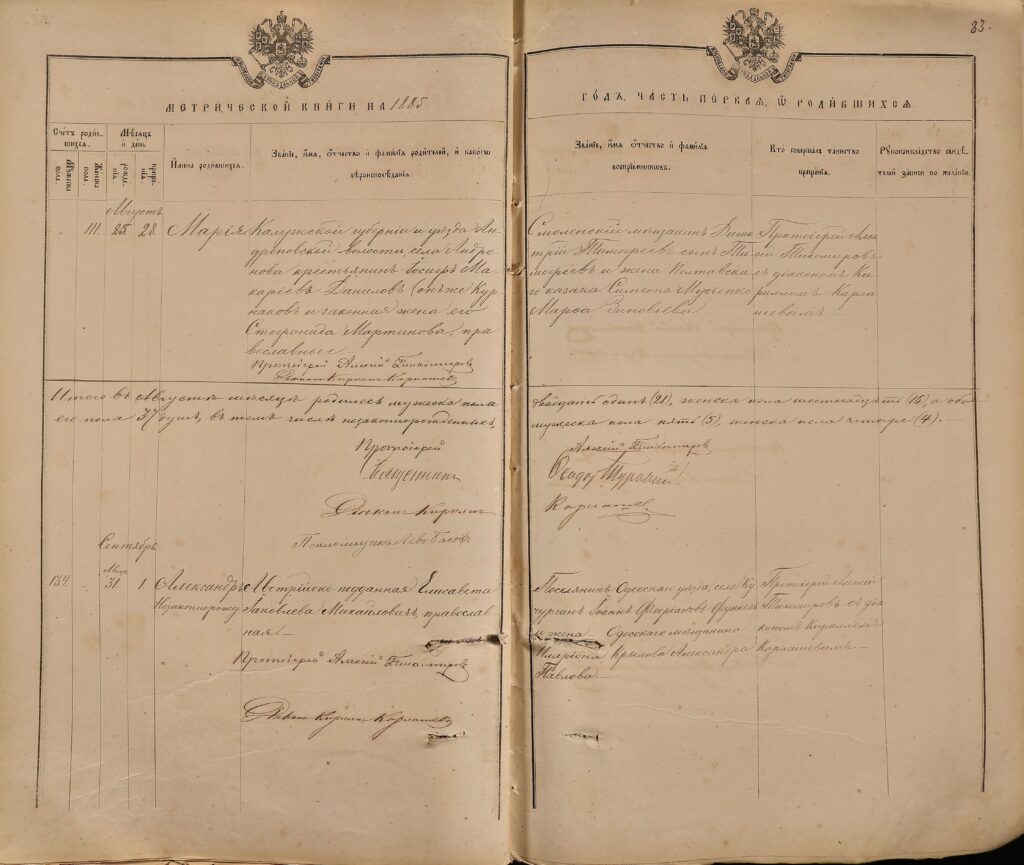 33.
МЕТРИЧЕСКОЙ КНИГИ НА 1885
ГОДЪ, ЧАСТЬ ПЕРВАЯ, Ѡ РОДИВШИХСЯ
Счетъ родив-
шихся.
Мужеска
пола.
Женска
пола
Мѣсяцъ
и день
рожде-
нія
креще-
нія.
Имена родившихся.
Званіе, имя, отчество и фамилія родителей, и какого
вѣроисповѣданія
Званіе, имя, отчество и фамилія
воспріемниковъ.
Кто совершалъ таинство
крещенія.
Рукоприкладство свидѣ-
телей записи по желанію.
Августъ
111. 25. 28. Марія
Калужской губерніи и уѣзда Ан-
дроновской волости, села Андро-
нова крестьянинъ Іосифъ Ма-
каріевъ Даниловъ (онъ же Кур-
наковъ и законная жена его
Стефанида Мартинова, пра-
вославные.
Протоіерей Алексій Тихомировъ
Діаконъ Кириллъ Карташевъ
Смоленскій мѣщанинъ Дими-
трій Тимофеевъ сынъ Ти-
мофеевъ и жена Полтавска-
го казака Симеона Мусіенко
Марѳа Зиновіева.
Протоіерей Алек-
сій Тихомировъ
съ діакономъ Ки-
рилломъ Карта-
шевымъ.
Итого въ Августѣ мѣсяцѣ родилось мужеска пола
двадцать одинъ (21), женска пола шестнадцать (16), а обо-
его пола 37 душъ, въ томъ числѣ незаконнорожденныхъ,
мужеска пола пять (5), женска пола четыре (4).
Протоіерей
Алексій Тихомировъ
Священникъ
Діаконъ Кириллъ
Карташевъ
Псаломщикъ
Сентябрь
134. Авгус. 31 1 Александръ
Незаконнорожд.
Австрійско подданная Елисавета
Іаковлева Михайловичъ, православ-
ная.
Протоіерей Алексій Тихомировъ
Діаконъ Кириллъ Карташевъ
Поселянинъ Одесскаго уѣзда, села Ку-
чурганъ Іоаннъ
и жена Одесскаго мѣщанина
Иларіона Крылова Александра
Павлова.
Протоіерей Алексій
Тихомировъ съ діа-
кономъ Кирилломъ
Карташевымъ.